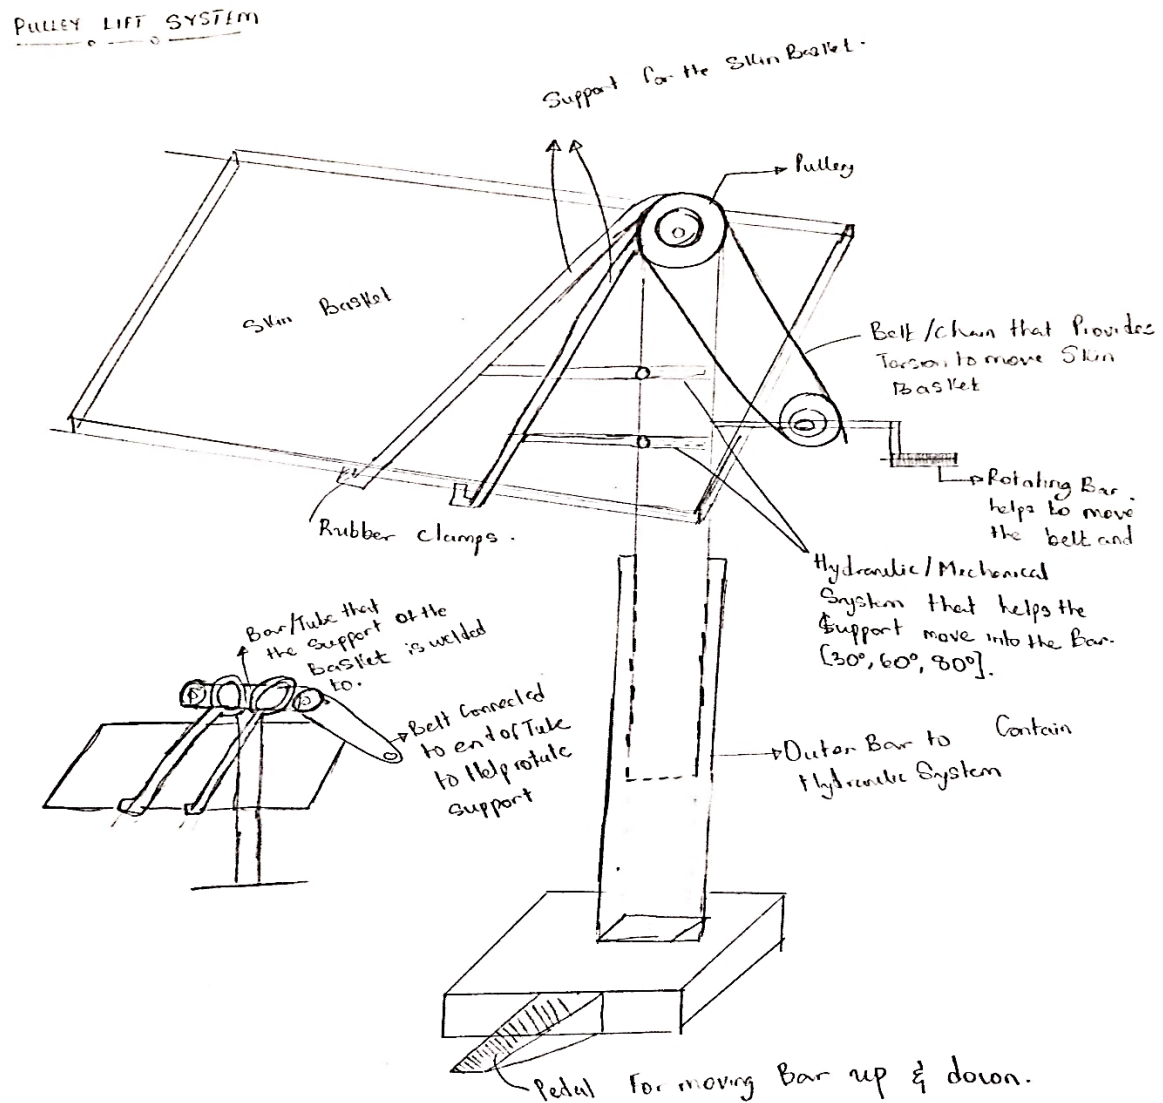 PULLEY LIFT SYSTEM
Support for the Skin Basket.
Pullery
Skin Basket
Belt/Chain that Provides
Torsion to move Skin
Basket
Rotating Bar.
helps to move
the belt and
Rubber clamps.
Hydraulic/Mechanical
System that helps the
Support move into the Bar.
[30°, 60°, 80°].
Bar/Tube that
the support of the
Basket is welded
to.
Belt Connected
to end of Tube
to Help rotate
support
Outer Bar to Contain
Hydraulic System
Pedal For moving Bar up & down.